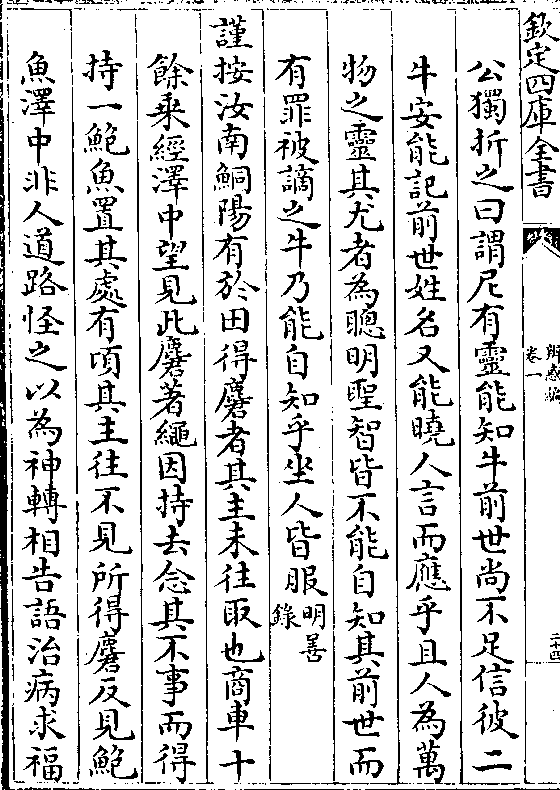 欽定四庫全書
辨惑編
卷一
二十四
公獨折之曰謂尼有靈能知牛前世尚不足信彼二
牛安能記前世姓名又能曉人言而應乎且人為萬
物之靈其尤者為聰明聖智皆不能自知其前世而
有罪被謫之牛乃能自知乎坐人皆服明善
錄
謹按汝南鮦陽有於田得麏者其主未往取也商車十
餘乘經澤中望見此麏著繩因持去念其不事而得
持一鮑魚置其處有頃其主往不見所得麏反見鮑
魚澤中非人道路怪之以為神轉相告語治病求福